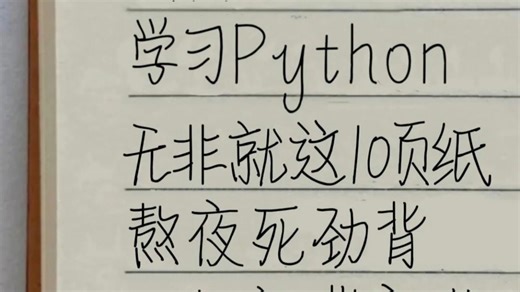 学习Python
无非就这10页纸
熬夜死劲背